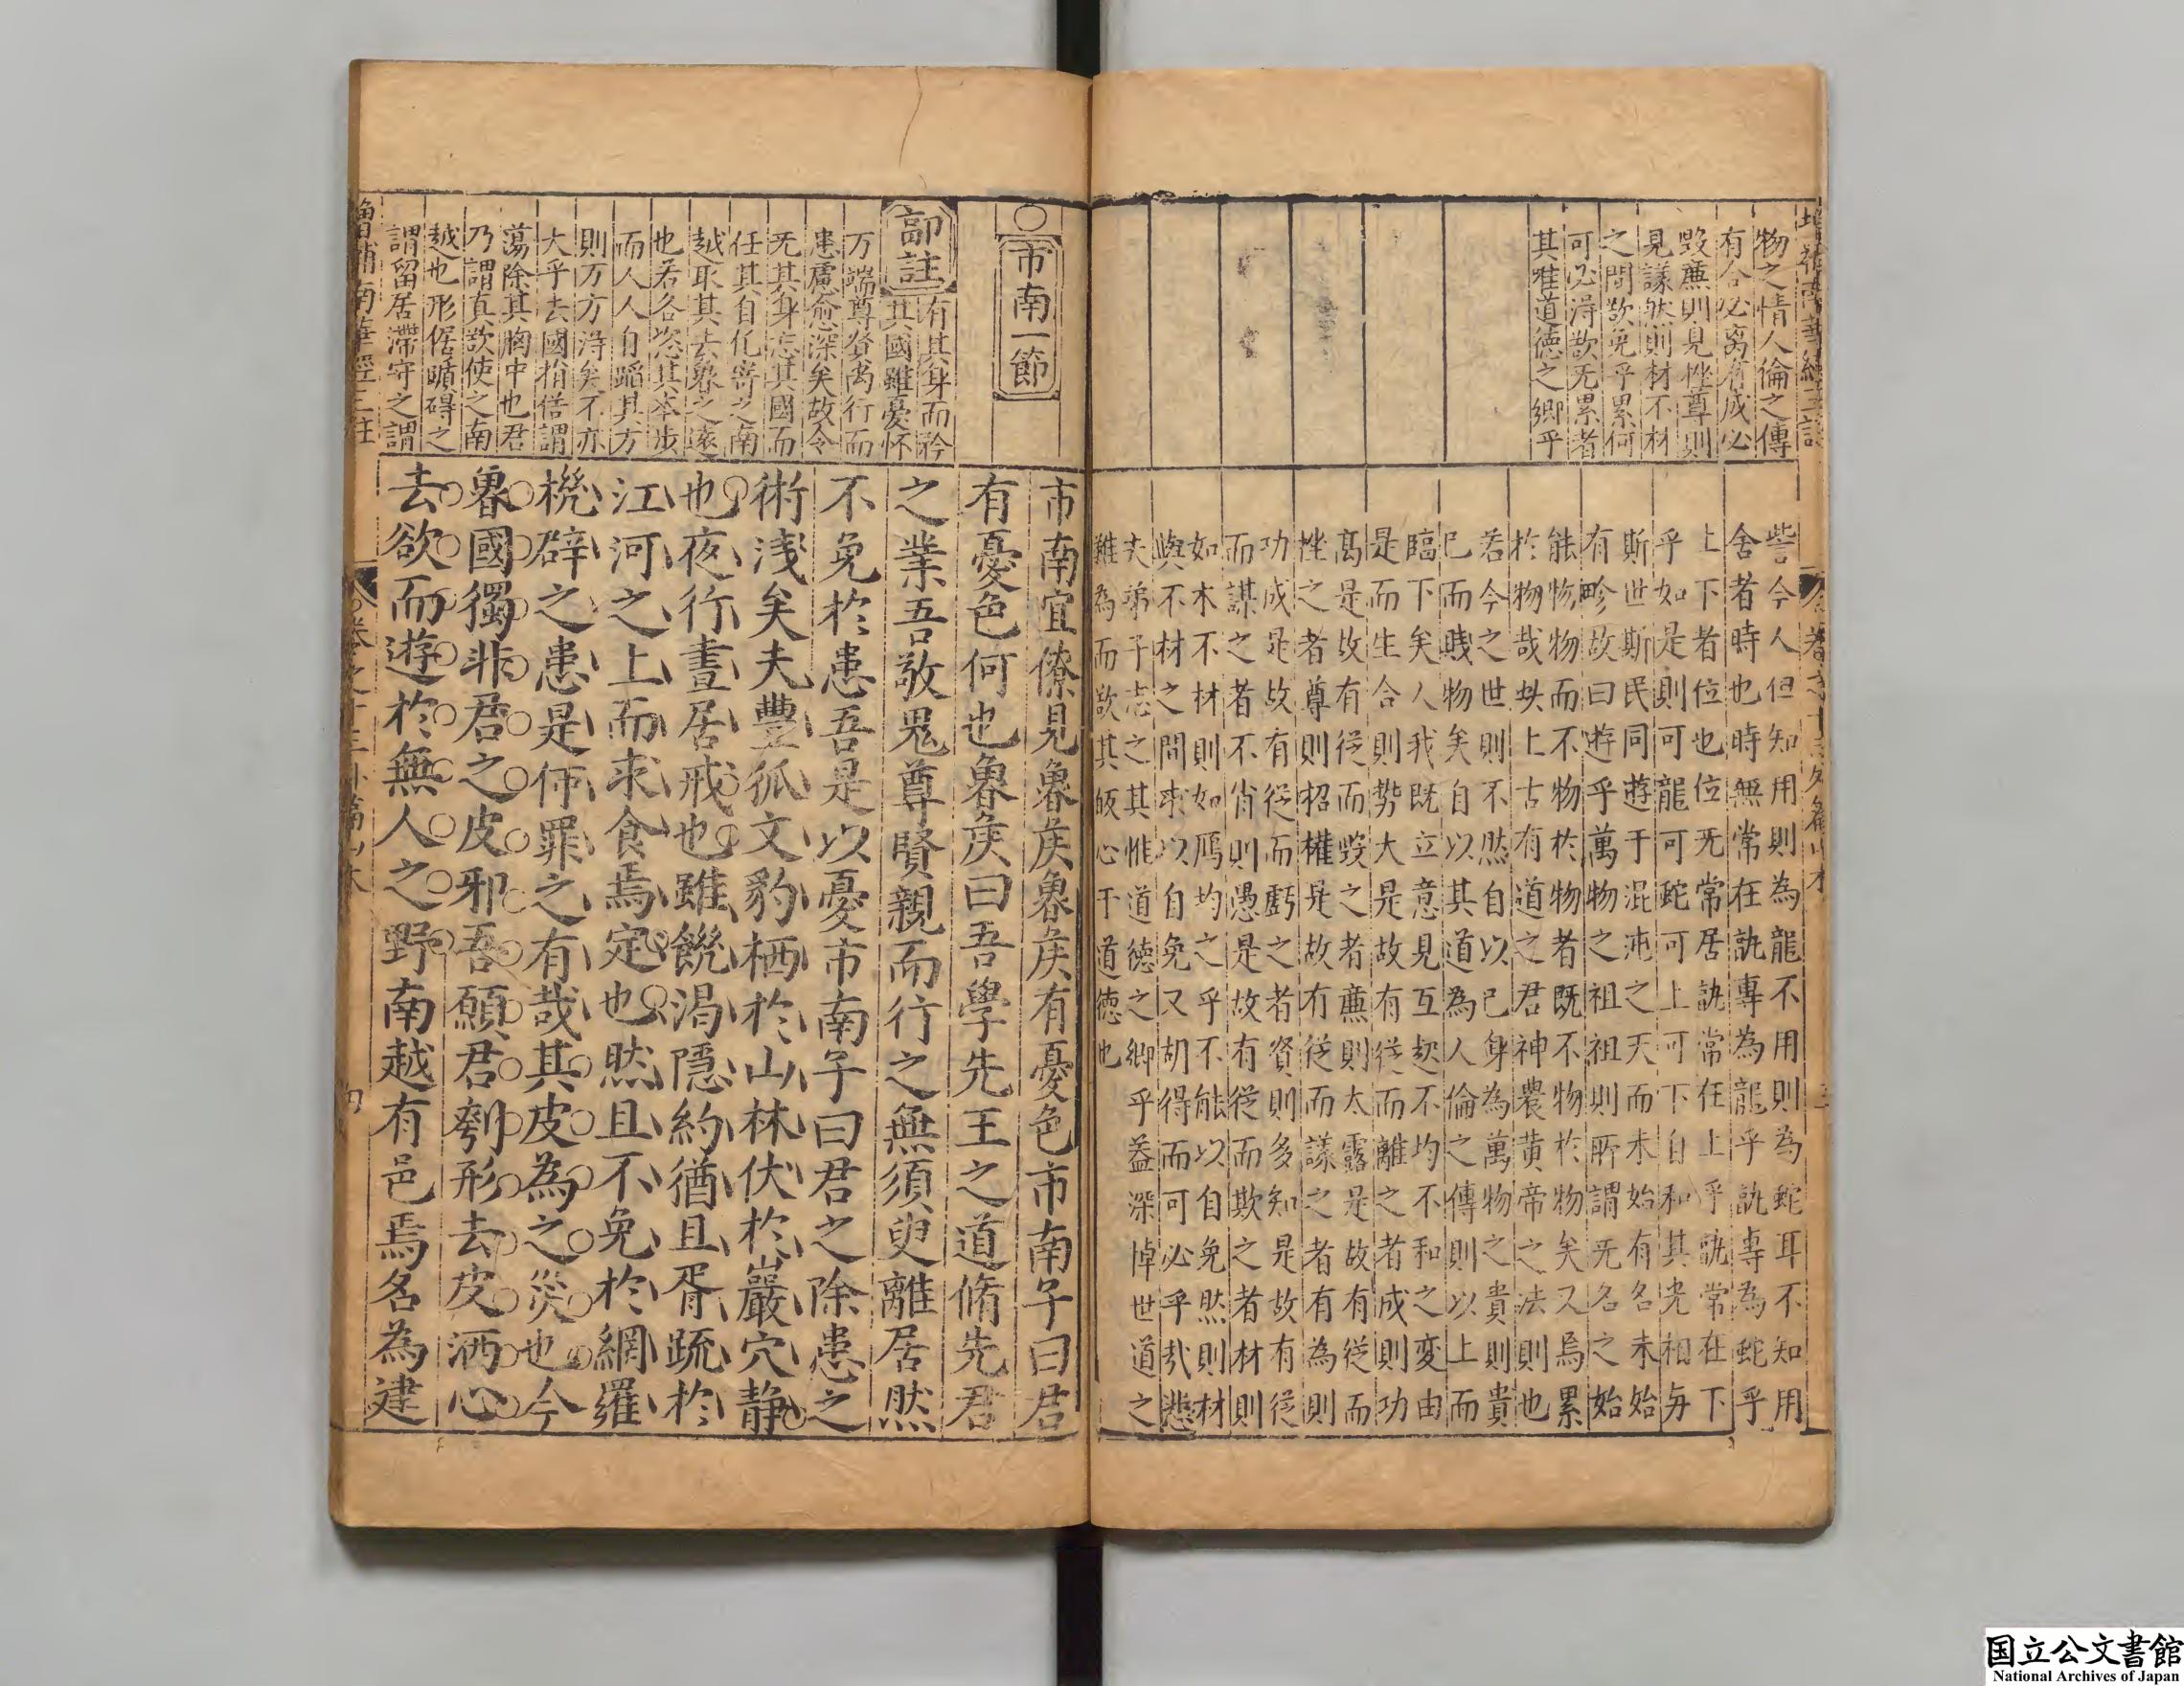 物之情人倫之傳
有合必离有成必
毀㢘則見挫尊則
見議然則材不材
之間欲免乎累何
可必淂欤无累者
其唯道德之鄉乎
訾今人但知用則為龍不用則為蛇耳不知用
舍者時也時無常在訛專為龍乎訛專為蛇乎
上下者位也位无常居訛常在上乎訛常在下
乎如是則可龍可蛇可上可下自和其光相與
斯世斯民同遊于混沌之天而未始有名未始
有畛故曰遊乎萬物之祖祖則所謂无名之始
能物物而不物於物者既不物於物矣又烏累
於物哉此上古有道之君神農黄帝之法則也
若今之世則不然自以己身為萬物之貴則貴
已而賤物矣自以其道為人倫之傳則以上而
臨下矣人我既立意見互起不均不和之变由
是而生合則勢大是故有從而離之者成則功
高是故有從而毀之者㢘則太露是故有從而
挫之者尊則招權是故有從而議之者有為則
功成是故有從而虧之者資則多知是故有從
而謀之者不肖則愚是故有從而欺之者材則
如木不材則如鴈均之乎不能以自免然則材
與不材之間求以自免又胡得而可必乎哉悲
夫弟子志之其惟道德之鄉乎葢深悼世道之
難為而欲其皈心于道德也
市南一節
郭註
有其身而矜
其國雖憂怀
万端尊贤尚行而
患慮愈深矣故令
无其身忘其國而
任其自化寄之南
越取其去魯之遠
也若各恣其本步
而人人自蹈其方
則万方淂矣不亦
大乎去國捐俗謂
蕩除其胸中也君
乃謂真欲使之南
越也形倨躓碍之
謂留居滯守之謂
市南宜僚見魯侯魯侯有憂色市南子曰君
有憂色何也魯侯曰吾學先王之道脩先君
之業吾敬鬼尊賢親而行之無須臾離居然
不免於患吾是以憂市南子曰君之除患之
術淺矣夫豐狐文豹栖於山林伏於巖穴静
也夜行晝居戒也雖饑渴隱約猶且胥疏於
江河之上而求食焉定也然且不免於網羅
機辟之患是何罪之有哉其皮為之災也今
魯國獨非君之皮邪吾願君刳形去皮洒心
去欲而遊於無人之野南越有邑焉名為建
增補南華經三註
国立公文書館
National Archives of Japan